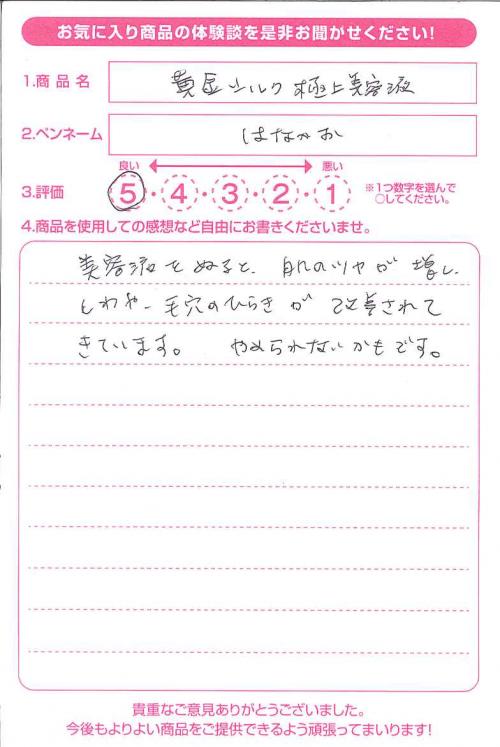 お気に入り商品の体験談を是非お聞かせください!
1.商品名
黄金シルク 極上美容液
2.ペンネーム
はなかお
良い 悪い
3.評価
5・4・3・2・1
※1つ数字を選んで
○してください。
4.商品を使用しての感想など自由にお書きくださいませ。
美容液をぬると、肌のツヤが増し、
しわや、毛穴のひらきが改善されて
きています。 やめられないかもです。
貴重なご意見ありがとうございました。
今後もよりよい商品をご提供できるよう頑張ってまいります!